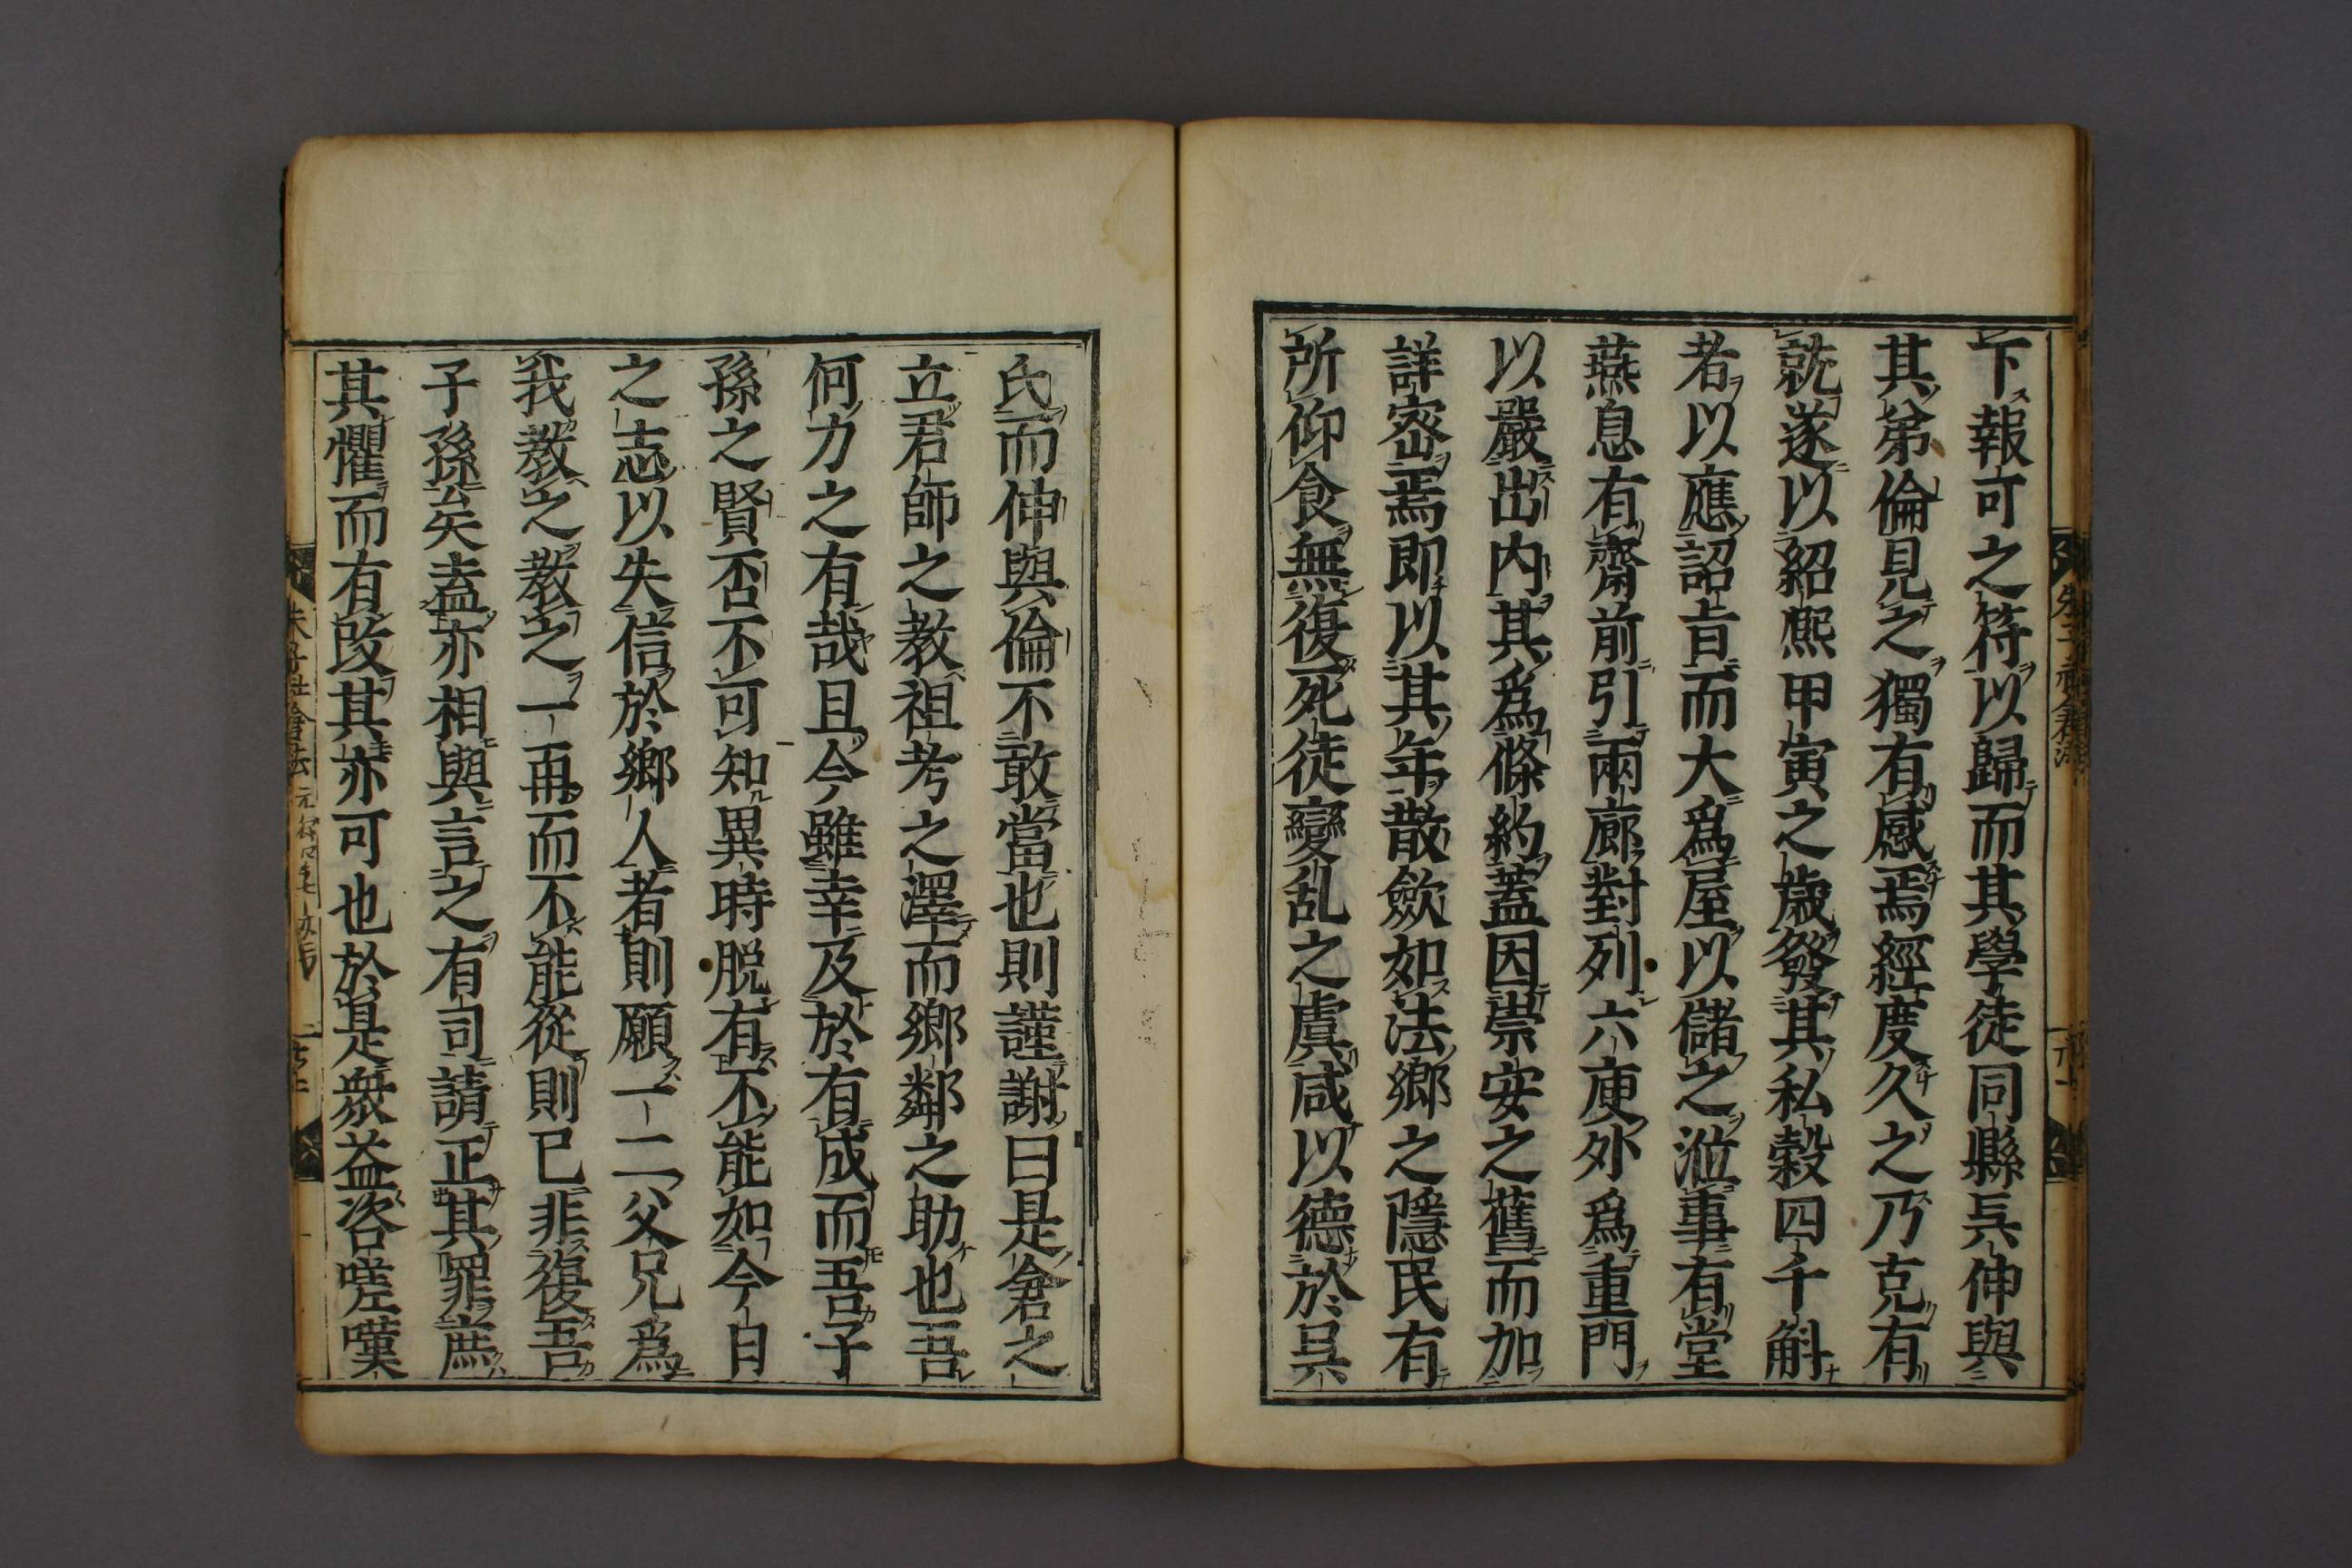 下報可之符以歸而其學徒同縣吳伸與
其弟倫見之獨有感焉經度久之乃克有
就遂以紹熙甲寅之歲發其私穀四千斛
者以應詔旨而大爲屋以儲之涖事有堂
燕息有齋前引兩廊對列六庾外爲重門
以嚴出内其爲條約蓋因崇安之舊而加
詳密焉即以其年散歛如法鄉之隱民有
所仰食無復死徙變乱之虞咸以德於吳
氏而伸與倫不敢當也則謹謝曰是倉之
立君師之教祖考之澤而鄉鄰之助也吾
何力之有哉且今雖幸及於有成而吾子
孫之賢否不可知異時脱有不能如今日
之志以失信於鄉人者則願一二父兄爲
我教之教之一再而不能從則已非復吾
子孫矣盍亦相與言之有司請正其罪庶
其懼而有改其亦可也於是衆益咨嗟嘆
朱子社倉法